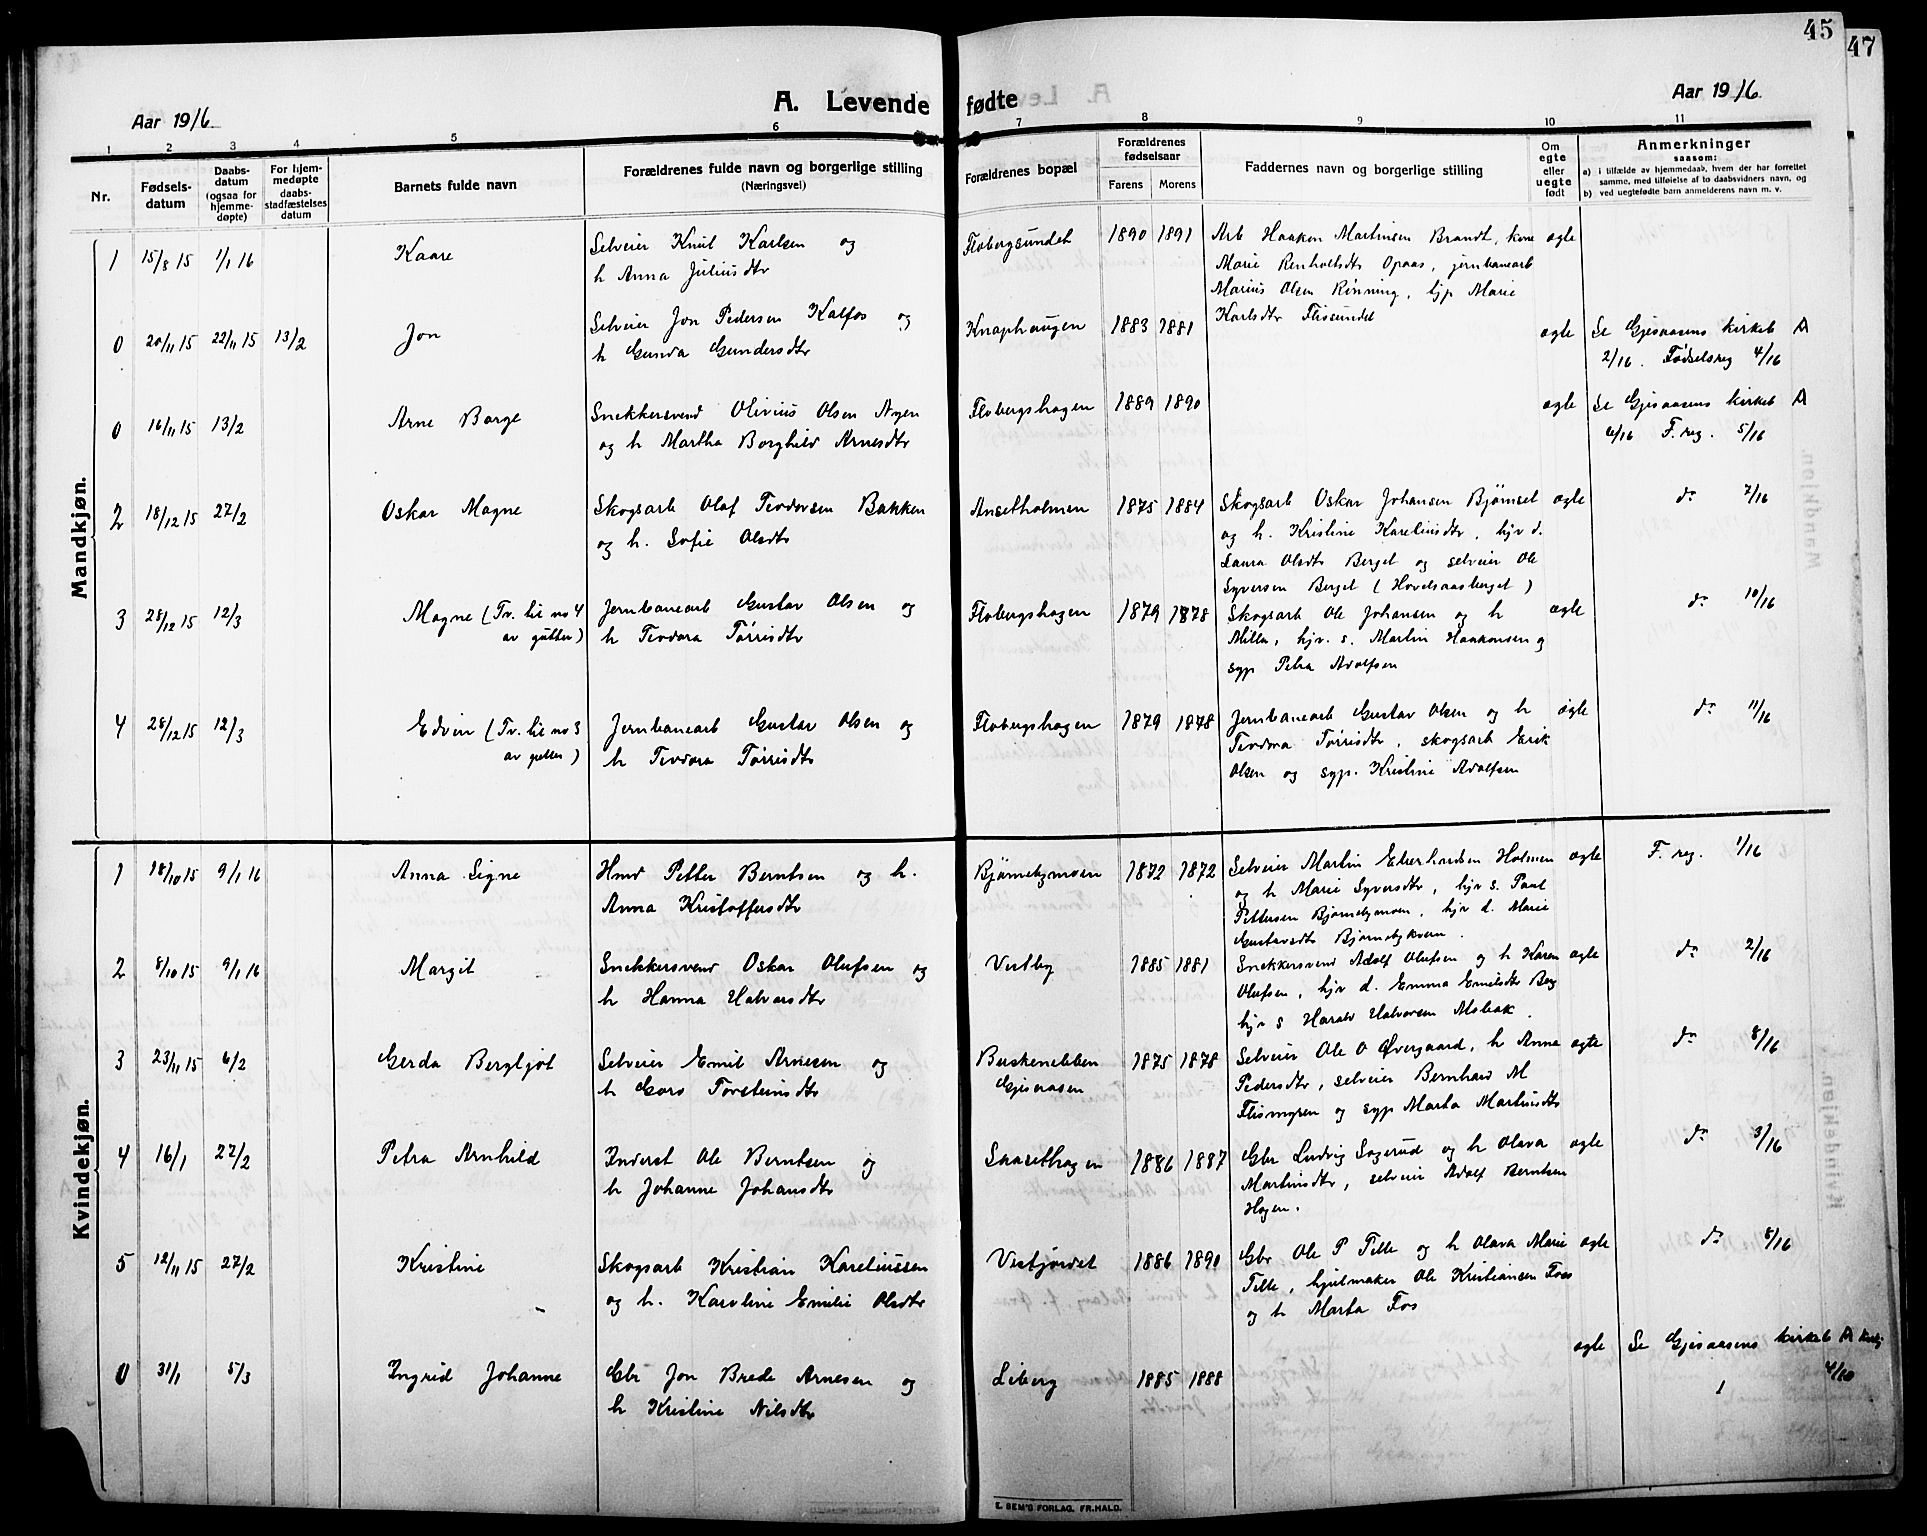 45
47
A. Levende fødte
Aar 1916
Aar 1916
1 2 3 4 5 6 7 8 9 10 11
Nr.
Fødsels-
datum
Daabs-
datum
(ogsaa for
hjemme-
døpte)
For hjem-
medøpte
daabs-
stadfæstelses
datum
Barnets fulde navn
Forældrenes fulde navn og borgerlige stilling
(Næringsvei)
Forældrenes bopæl
Forældrenes
fødselsaar
Farens Morens
Faddernes navn og borgerlige stilling
Om
egte
eller
uegte
født
Anmerkninger
saasom:
a) i tilfælde av hjemmedaab, hvem der har forrettet
samme, med tilføielse af to daabsvidners navn, og
b) ved uegtefødte barn anmelderens navn m. v.
Mandkjøn.
1 15/8 15 1/1 16 Kaare Selveier Knut Karlsen og Flobergsundet 1890 1891 Arb Haaken Martinsen Brandt, kone egte
h Anna Juliusdtr Marie Renholtsdtr Opaas, jernbanearb
Marius Olsen Rönning, tjp Marie
Karlsdtr Flissundet
0 20/11 15 22/11 15 13/2 Jon Selveier Jon Pedersen Kalfos og Knaphaugen 1883 1881 egte Se Gjesaasens kirkeb A
h Gunda Gundersdtr 2/16. Fødselsreg 4/16
0 16/11 15 13/2 Arne Borge Snekkersvend Olivius Olsen Flobergshagen 1889 1890 egte Se Gjesaasens kirkeb A
og h Martha Borghild Arnesdtr 6/16 F. reg. 5/16
2 18/12 15 27/2 Oskar Magne Skogsarb Olaf Teodorsen Bakken Ansetholmen 1875 1884 Skogsarb Oskar Johansen Bjørnset egte do 7/16
og h. Sofie Olsdtr og h. Kristine Kareliusdtr, hjv d.
Laura Olsdtr Berget og selveier Ole
Syversen Berget (Hovelsaasberget)
3 28/12 15 12/3 Magne (Tv. til no 4 Jernbanearb Gustav Olsen og Flobergshagen 1879 1878 Skogsarb Ole Johansen og h egte do 10/16
av gutter) h Teodora Törrisdtr Milla, hjv. s. Martin Haakonsen og
syp Petra Adolfsen
4 28/12 15 12/3 Edvin (Tv. til no 3 Jernbanearb Gustav Olsen og Flobergshagen 1879 1878 Jernbanearb Gustav Olsen og h egte do 11/16
av gutter) h Teodora Törrisdtr Teodora Törrisdtr, skogsarb Erik
Olsen og syp. Kristine Adolfsen
Kvindekjøn.
1 18/10 15 9/1 16 Anna Signe Hmd Petter Berntsen og h. Bjørnebymoen 1872 1872 Selveier Martin Eberhardsen Holmen egte F. reg. 1/16
Anna Kristoffersdtr og h Marie Syversdtr, hjv s. Paul
Pettersen Bjørnebymoen, hjv d. Marie
Gustavsdtr Bjørnebykvern.
2 8/10 15 9/1 16 Margit Snekkersvend Oskar Olufsen og Vestby 1885 1881 Snekkersvend Adolf Olufsen og h Karen egte do 2/16
h Hanna Halvorsdtr Olufsen, hjv d. Emma Emilsdtr Berg
hjv s Harald Halvorsen
3 23/11 15 6/2 Gerda Bergljot Selveier Emil Arnesen og Buskenebben 1875 1878 Selveier Ole O Øvergaard, h Anna egte do 8/16
h Goro Torsteinsdtr Gjesaasen Pedersdtr, selveier Bernhard M
Flismyren og syp Marta Martinsdtr
4 16/1 27/2 Petra Arnhild Inderst Ole Berntsen og 1886 1887 Gbr Ludvig Sagerud og h Olava egte do 3/16
h Johanne Johansdtr Martinsdtr, selveier Adolf Berntsen
Hagen.
5 12/11 15 27/2 Kristine Skogsarb Kristian Kareliussen Vestjordet 1886 1890 Gbr Ole P Tille og h Olava Marie egte do 6/16
og h. Karoline Emilie Olsdtr Tille, hjulmaker Ole Kristiansen Foss
og h Marta Fos
0 31/1 5/3 Ingrid Johanne Gbr Jon Brede Arnesen og Liberg 1885 1888 egte Se Gjesaasens kirkeb A
h Kristine Nilsdtr 4/16
E. SEM'S FORLAG, FR.HALD.